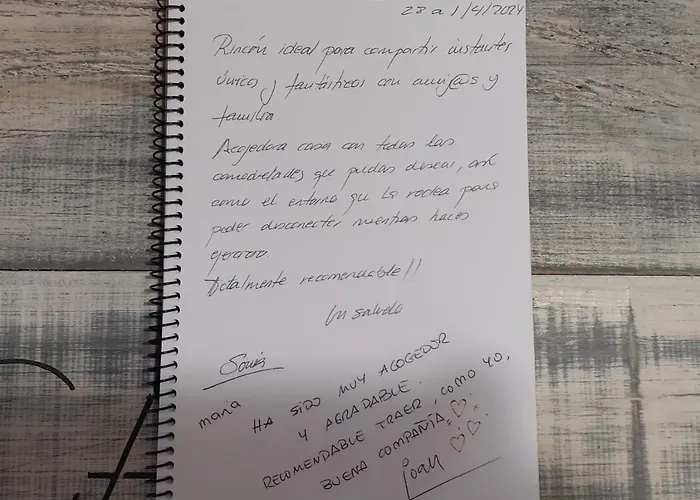 28 a 1/4/2024
Rincón ideal para compartir instantes
únicos y fantásticos con amig@s y
familia.
Acogedora casa con todas las
comodidades que puedas desear, así
como el entorno que la rodea para
poder desconectar mientras haces
ejercicio.
Totalmente recomendable!!
Un saludo
Sonia
maria
HA SIDO MUY ACOGEDOR
Y AGRADABLE.
RECOMENDABLE TRAER, COMO YO,
BUENA COMPAÑÍA.
joan